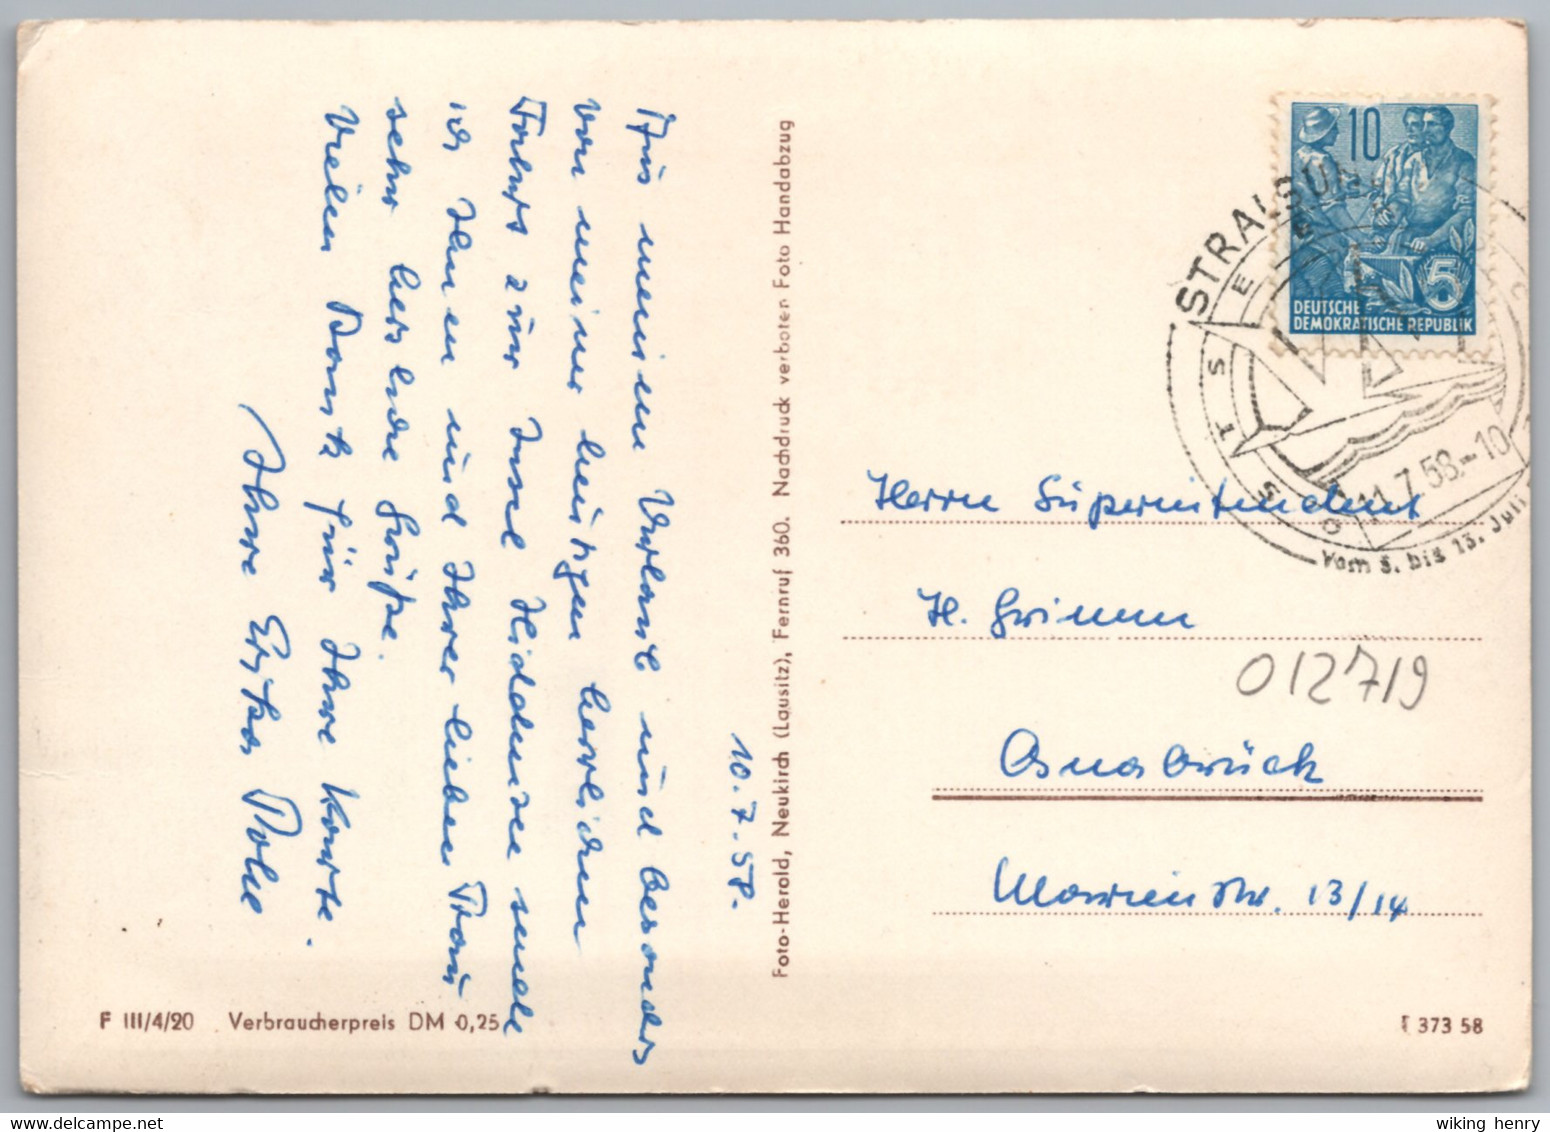 10.7.58.
Aus meinem Urlaub und besonders
von meiner heutigen herrlichen
Fahrt zur Insel Hiddensee sende
ich Ihnen und Ihrer lieben Frau
sehr herzliche Grüße.
Vielen Dank für Ihre Karte.
Ihre Erika
Foto-Herold, Neukirch (Lausitz), Fernruf 360. Nachdruck verboten Foto Handabzug
F III/4/20 Verbraucherpreis DM 0,25
10
5
DEUTSCHE
DEMOKRATISCHE REPUBLIK
STRALSUND
OSTSEE
11.7.58-10
vom 5. bis 13. Juli
Herrn Superintendent
H. Grimm
012719
Osnabrück
Marienstr. 13/14
373 58
wiking henry